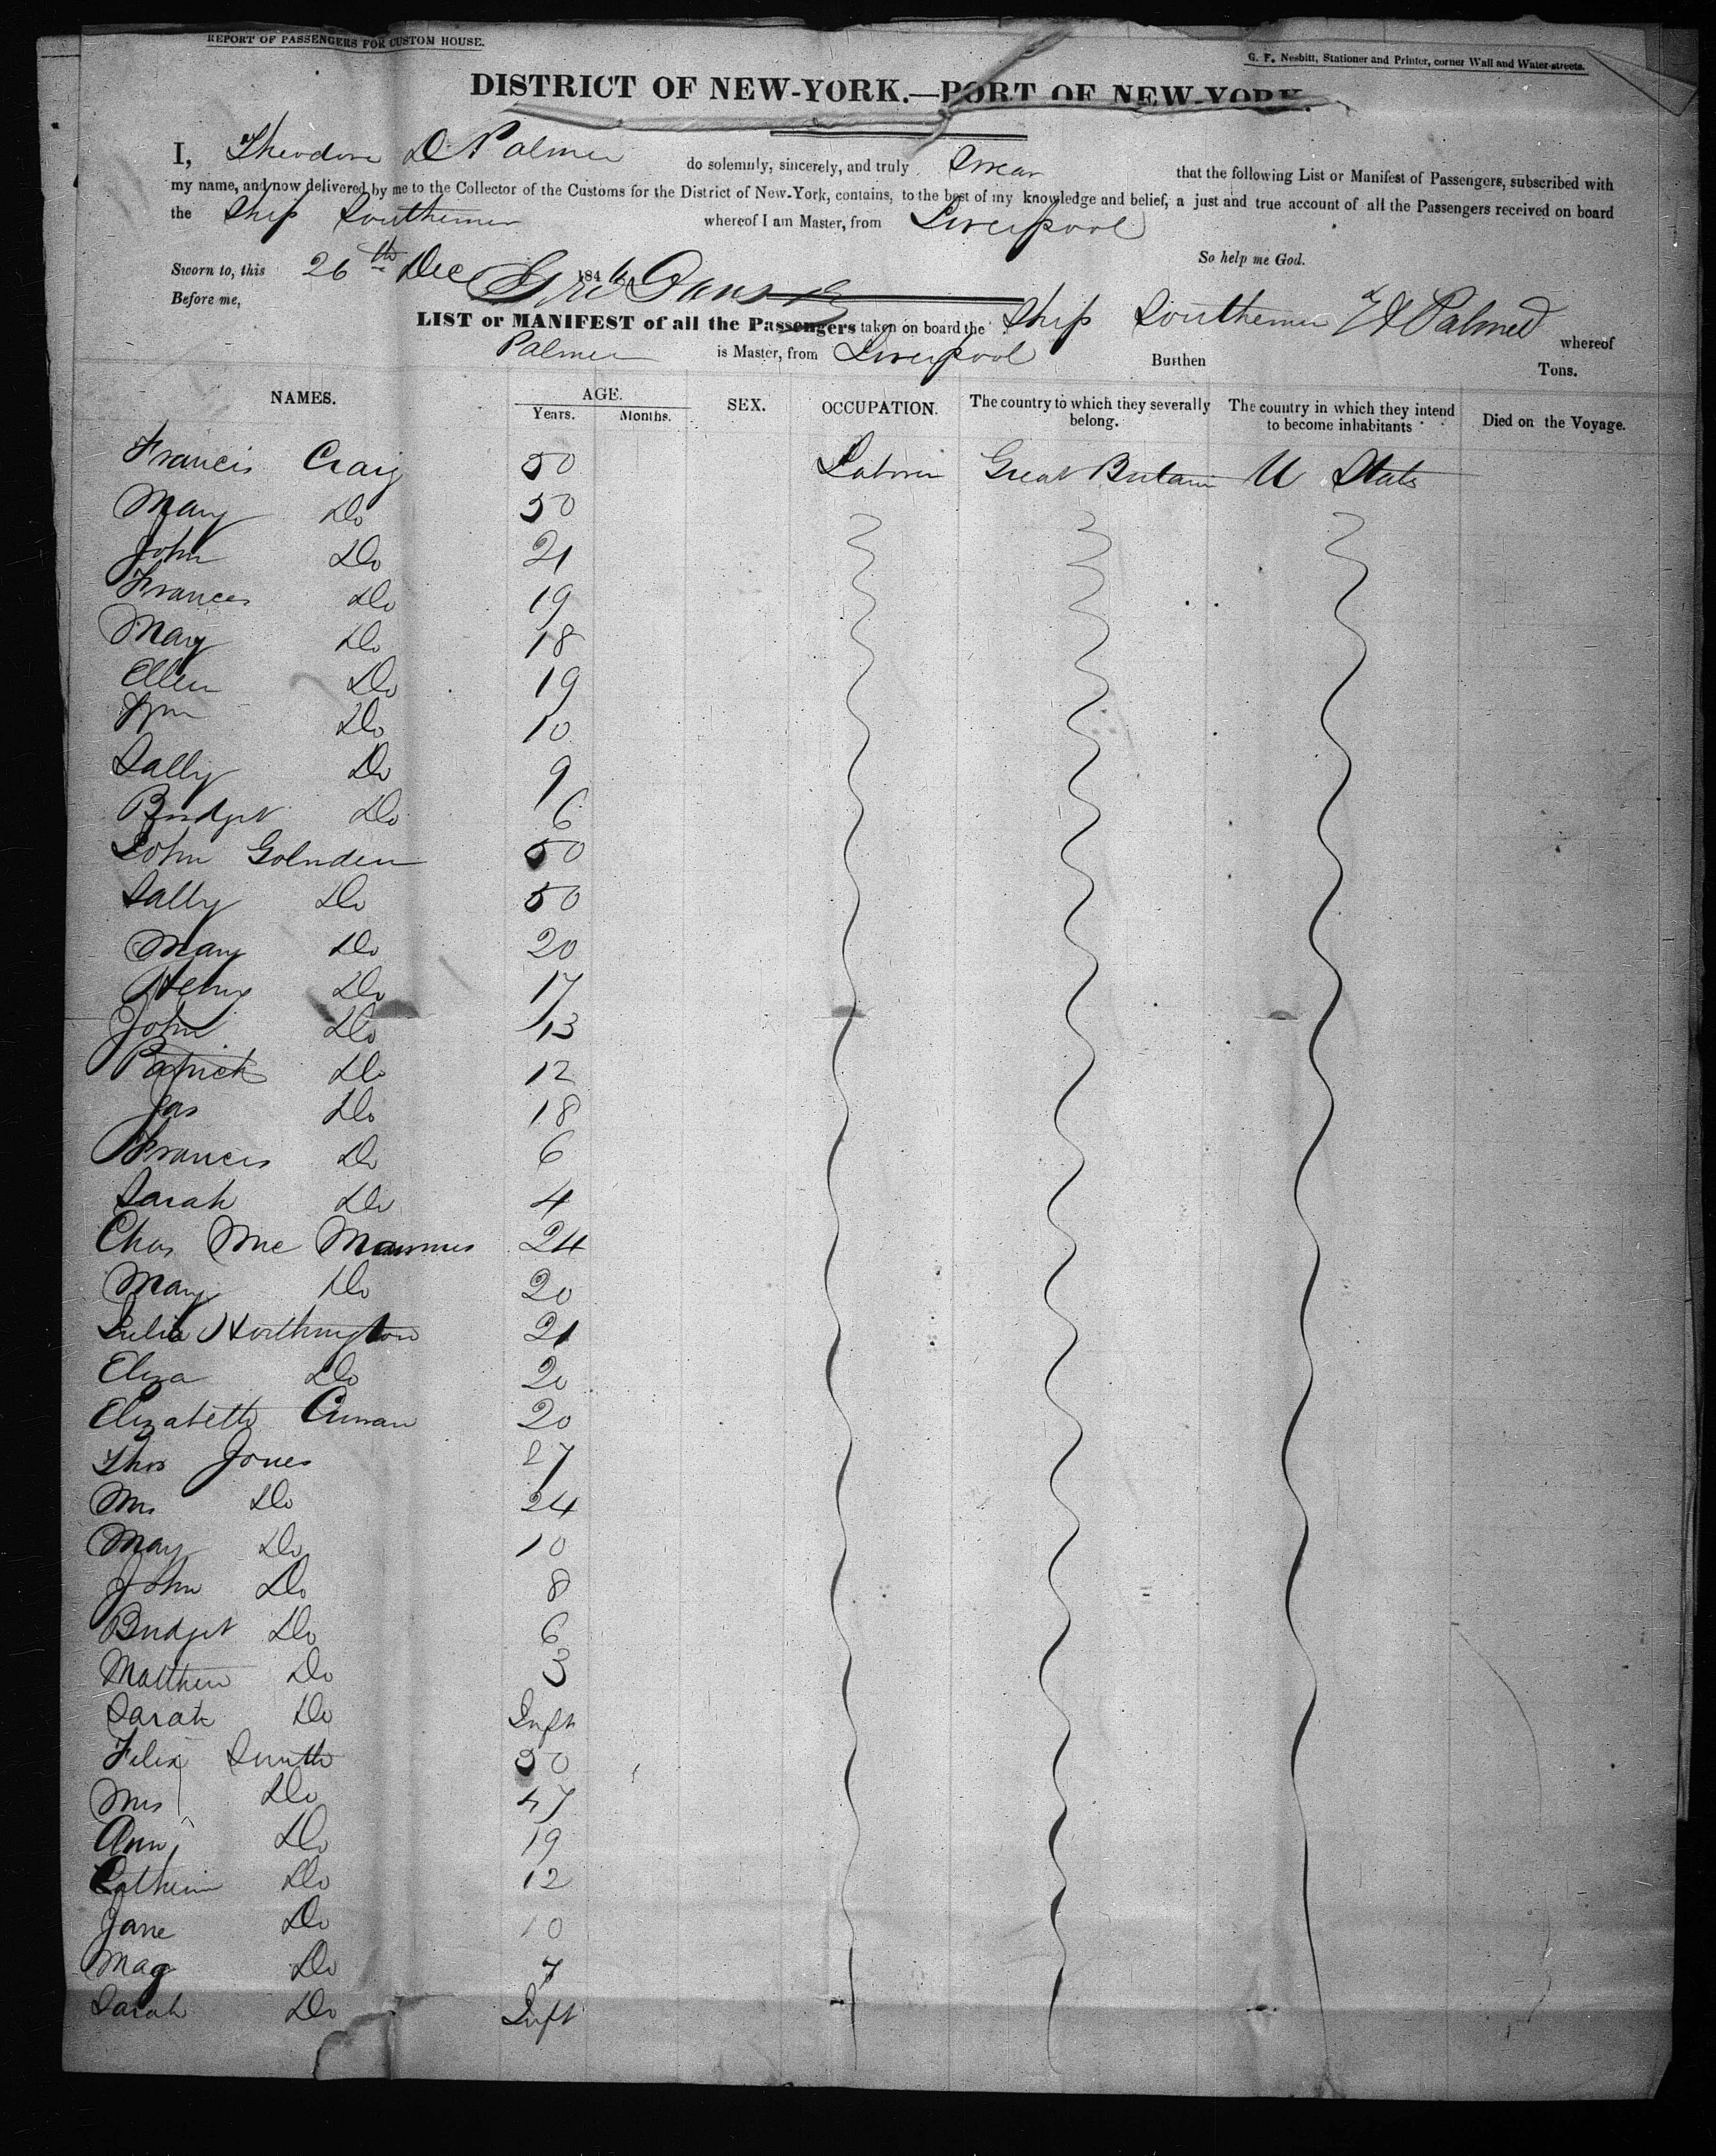 REPORT OF PASSENGERS FOR CUSTOM HOUSE.
G. F. Nesbitt, Stationer and Printer, corner Wall and Water-streets.
DISTRICT OF NEW-YORK.—PORT OF NEW-YORK.
I, Theodore D Palmer do solemnly, sincerely, and truly Swear that the following List or Manifest of Passengers, subscribed with
my name, and now delivered by me to the Collector of the Customs for the District of New-York, contains, to the best of my knowledge and belief, a just and true account of all the Passengers received on board
the Ship Southerner whereof I am Master, from Liverpool
So help me God.
Sworn to, this 26th Dec 1846
Before me,
LIST or MANIFEST of all the Passengers taken on board the Ship Southerner Palmer whereof
Palmer is Master, from Liverpool Burthen Tons.
NAMES. AGE. SEX. OCCUPATION. The country to which they severally belong. The country in which they intend to become inhabitants Died on the Voyage.
Years. Months.
Francis Craig 50 Laborer Great Britain U States
Mary Do 50
John Do 21
Frances Do 19
Mary Do 18
Ellen Do 19
Wm Do 10
Sally Do 9
Bridget Do 6
John Golnden 50
Sally Do 50
Mary Do 20
Henry Do 17
John Do 13
Patrick Do 12
Jas Do 18
Francis Do 6
Sarah Do 4
Chas Mc Mannus 24
Mary Do 20
Julia Worthington 21
Eliza Do 20
Elizabeth Curran 20
Thos Jones 27
Mrs Do 24
Mary Do 10
John Do 8
Bridget Do 6
Matthew Do 3
Sarah Do Inft
Felix Smith 50
Mrs Do 47
Ann Do 19
Catherin Do 12
Jane Do 10
Mag Do 7
Sarah Do Inft